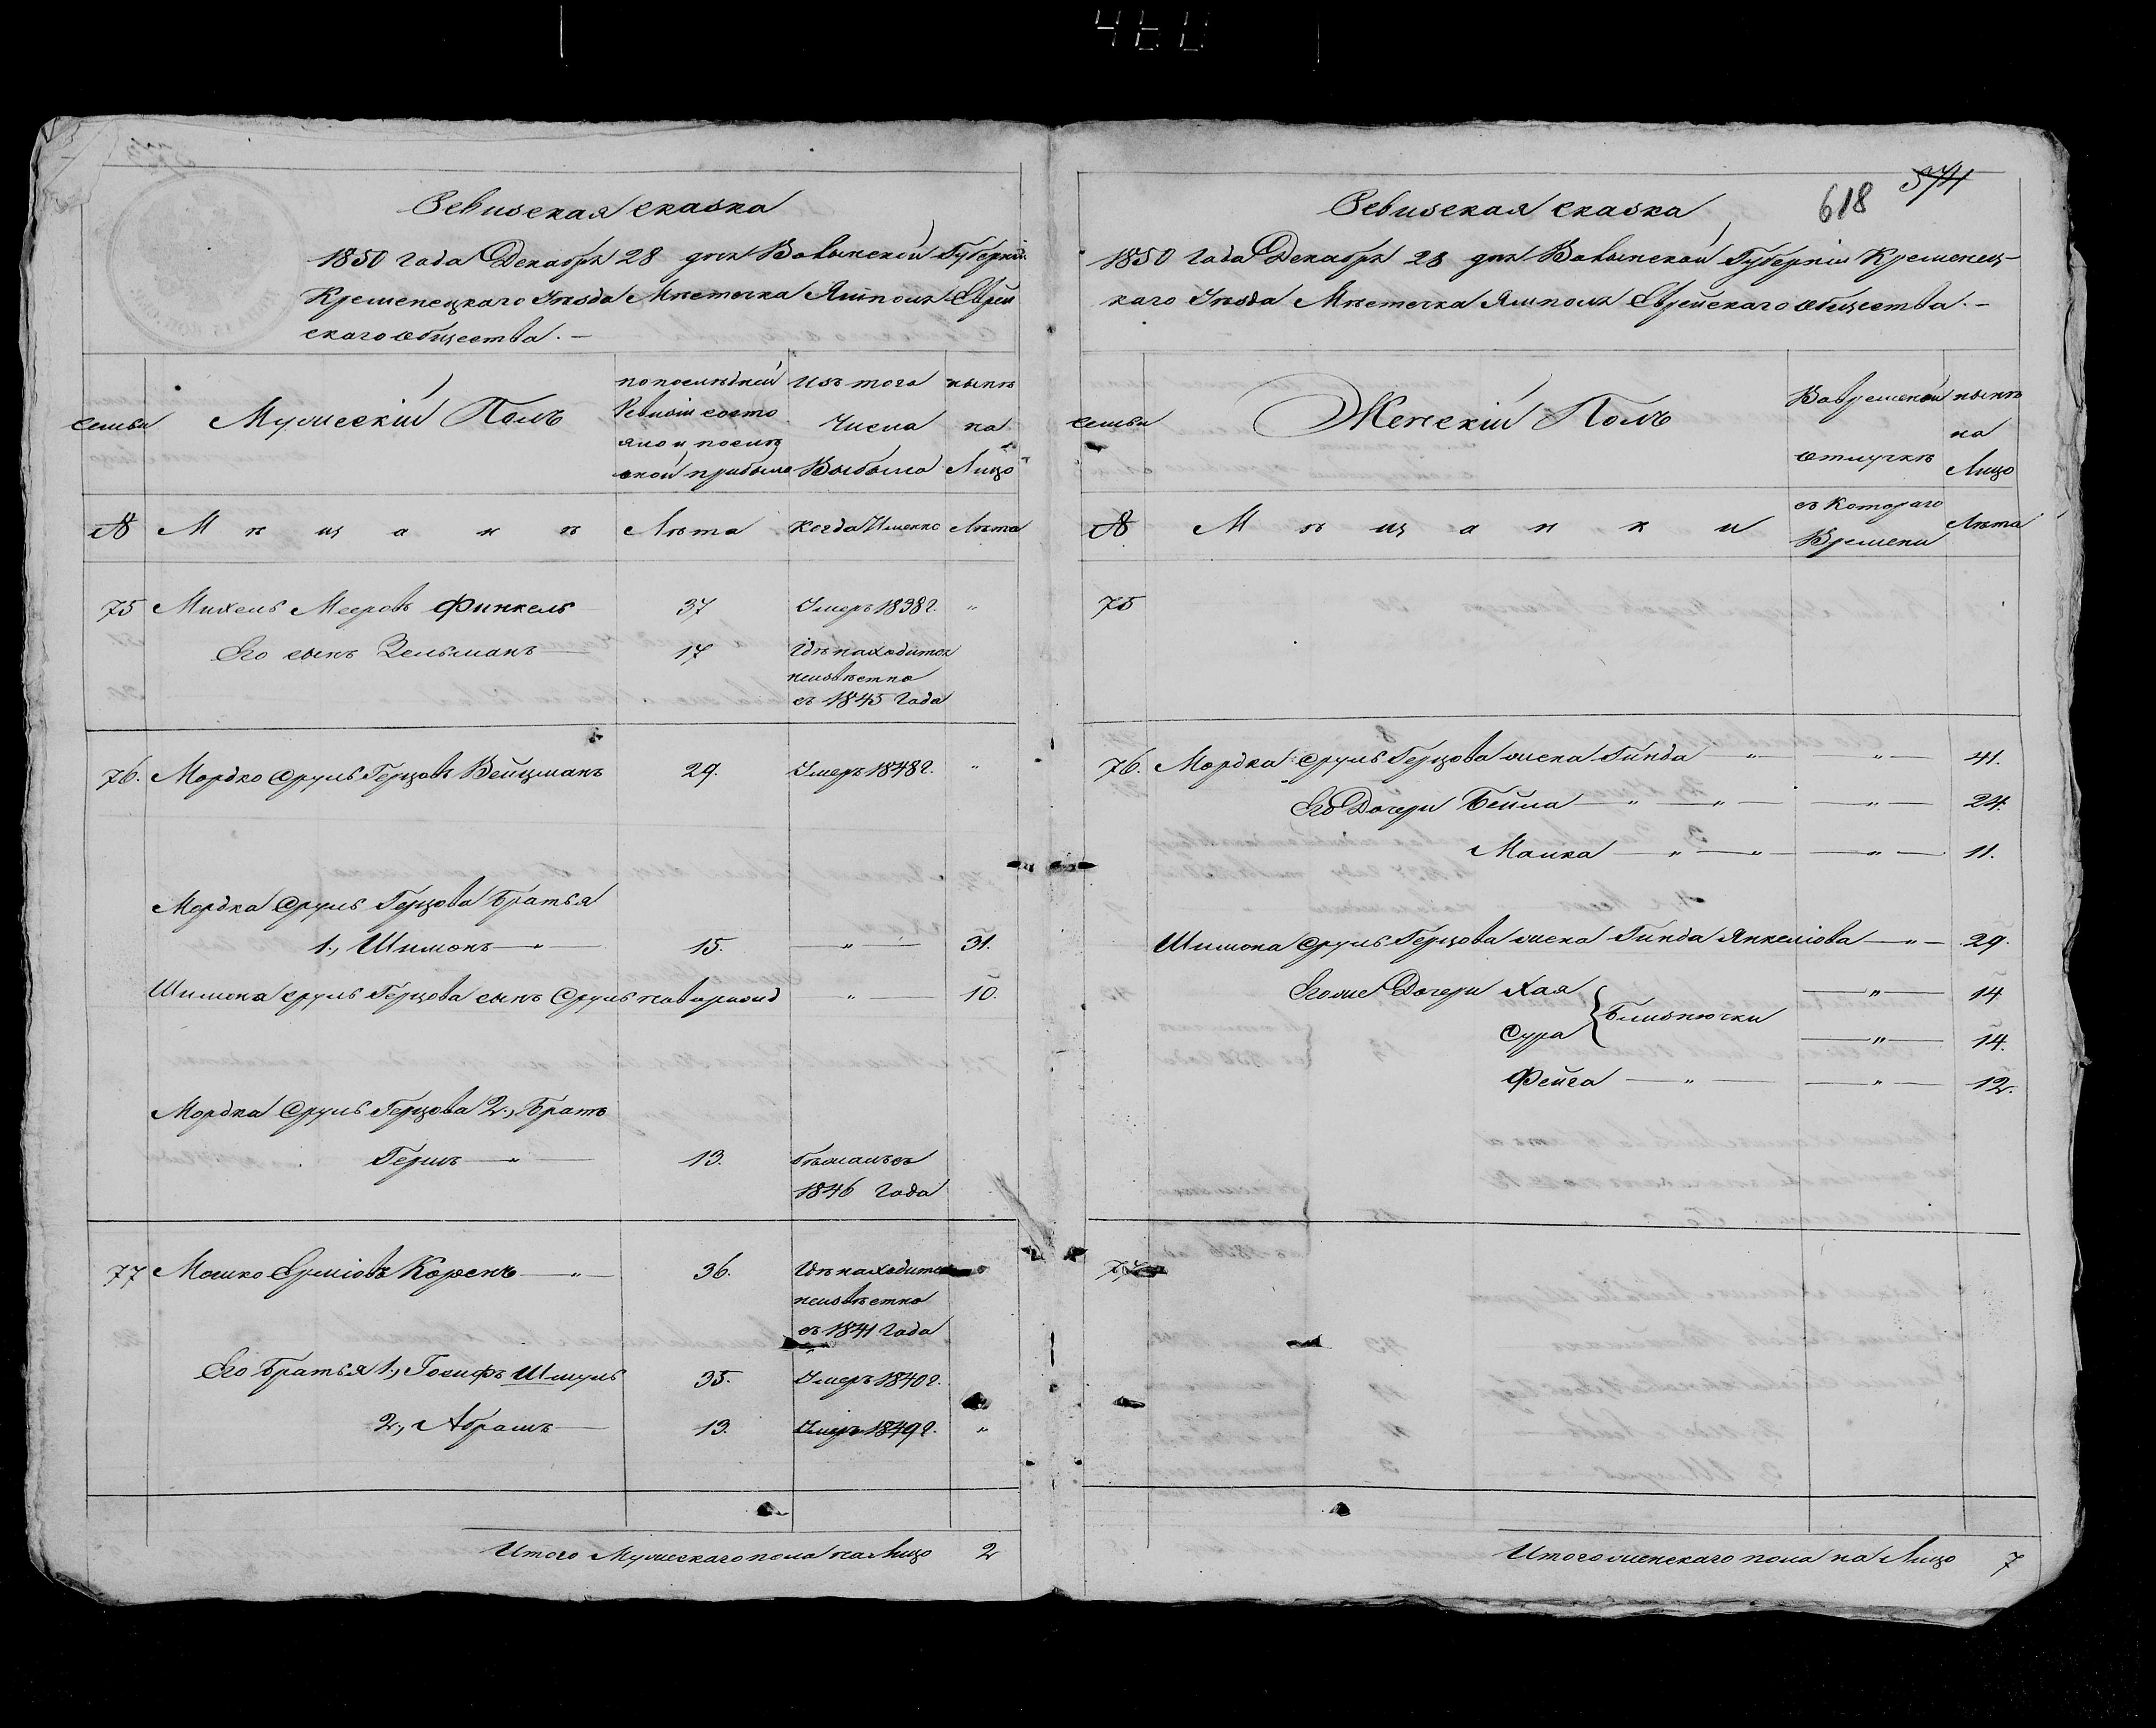 460
Ревизская сказка
1850 года Декабря 28 дня Волынской Губерніи
Кременецкаго Уѣзда Мѣстечка Ямполя Еврей
скаго общества. —
семьи
Мужескій Полъ
по послѣдней
Ревизіи состо
яло и послѣ
оной прибыло
Изъ того
Числа
Выбыло
нынѣ
на
Лицо
№
Мѣщанѣ
Лѣта
Когда Именно
Лѣта
75 Михель Мееровъ Финкель 37 Умеръ 1838 г. "
Его сынъ Зельманъ — 17 Гдѣ находится
неизвѣстно
съ 1845 Года
76. Мордко Сруль Герцовъ Вейцманъ 29. Умеръ 1848 г. "
Мордка Сруль Герцова Братья
1., Шимонъ — " — 15. " — 31.
Шимона Сруль Герцова сынъ Сруль новорожд " — 10.
Мордка Сруль Герцова 2., Братъ
Гершъ — " — 13. бѣжалъ съ
1846 Года
77 Мошко Сруліовъ Коренъ — " — 36. Гдѣ находится
неизвѣстно
съ 1841 Года
Его Братья 1., Іосифъ Шмуль 35. Умеръ 1840 г.
2., Абрамъ — 13. Умеръ 1849 г. "
Итого Мужескаго пола на Лицо 2
618 571
Ревизская сказка
1850 Года Декабря 28 дня Волынской Губерніи Кременец-
каго Уѣзда Мѣстечка Ямполя Еврейскаго общества. —
семьи
Женскій Полъ
Во временной
отлучкѣ
нынѣ
на
Лицо
№
Мѣщанки
съ Котораго
Времени
Лѣта
75
76. Мордка Сруль Герцова жена Гинда — " — " — 41.
Его Дочери Бейла — " — " — " — 24.
Малка — " — " — " — 11.
Шимона Сруль Герцова жена Гинда Янкеліова — " — 29.
Его же Дочери Хая — " — 14
Близнючки
Сура — " — 14.
Фейга — " — " — 12.
77
Итого женскаго пола на Лицо 7